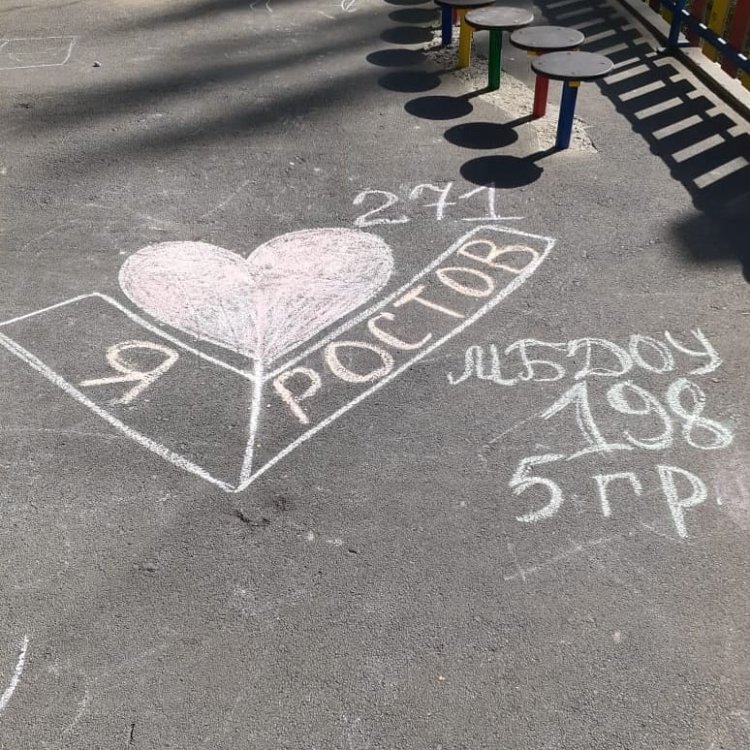 271
Я РОСТОВ
МБДОУ
198
5 гр